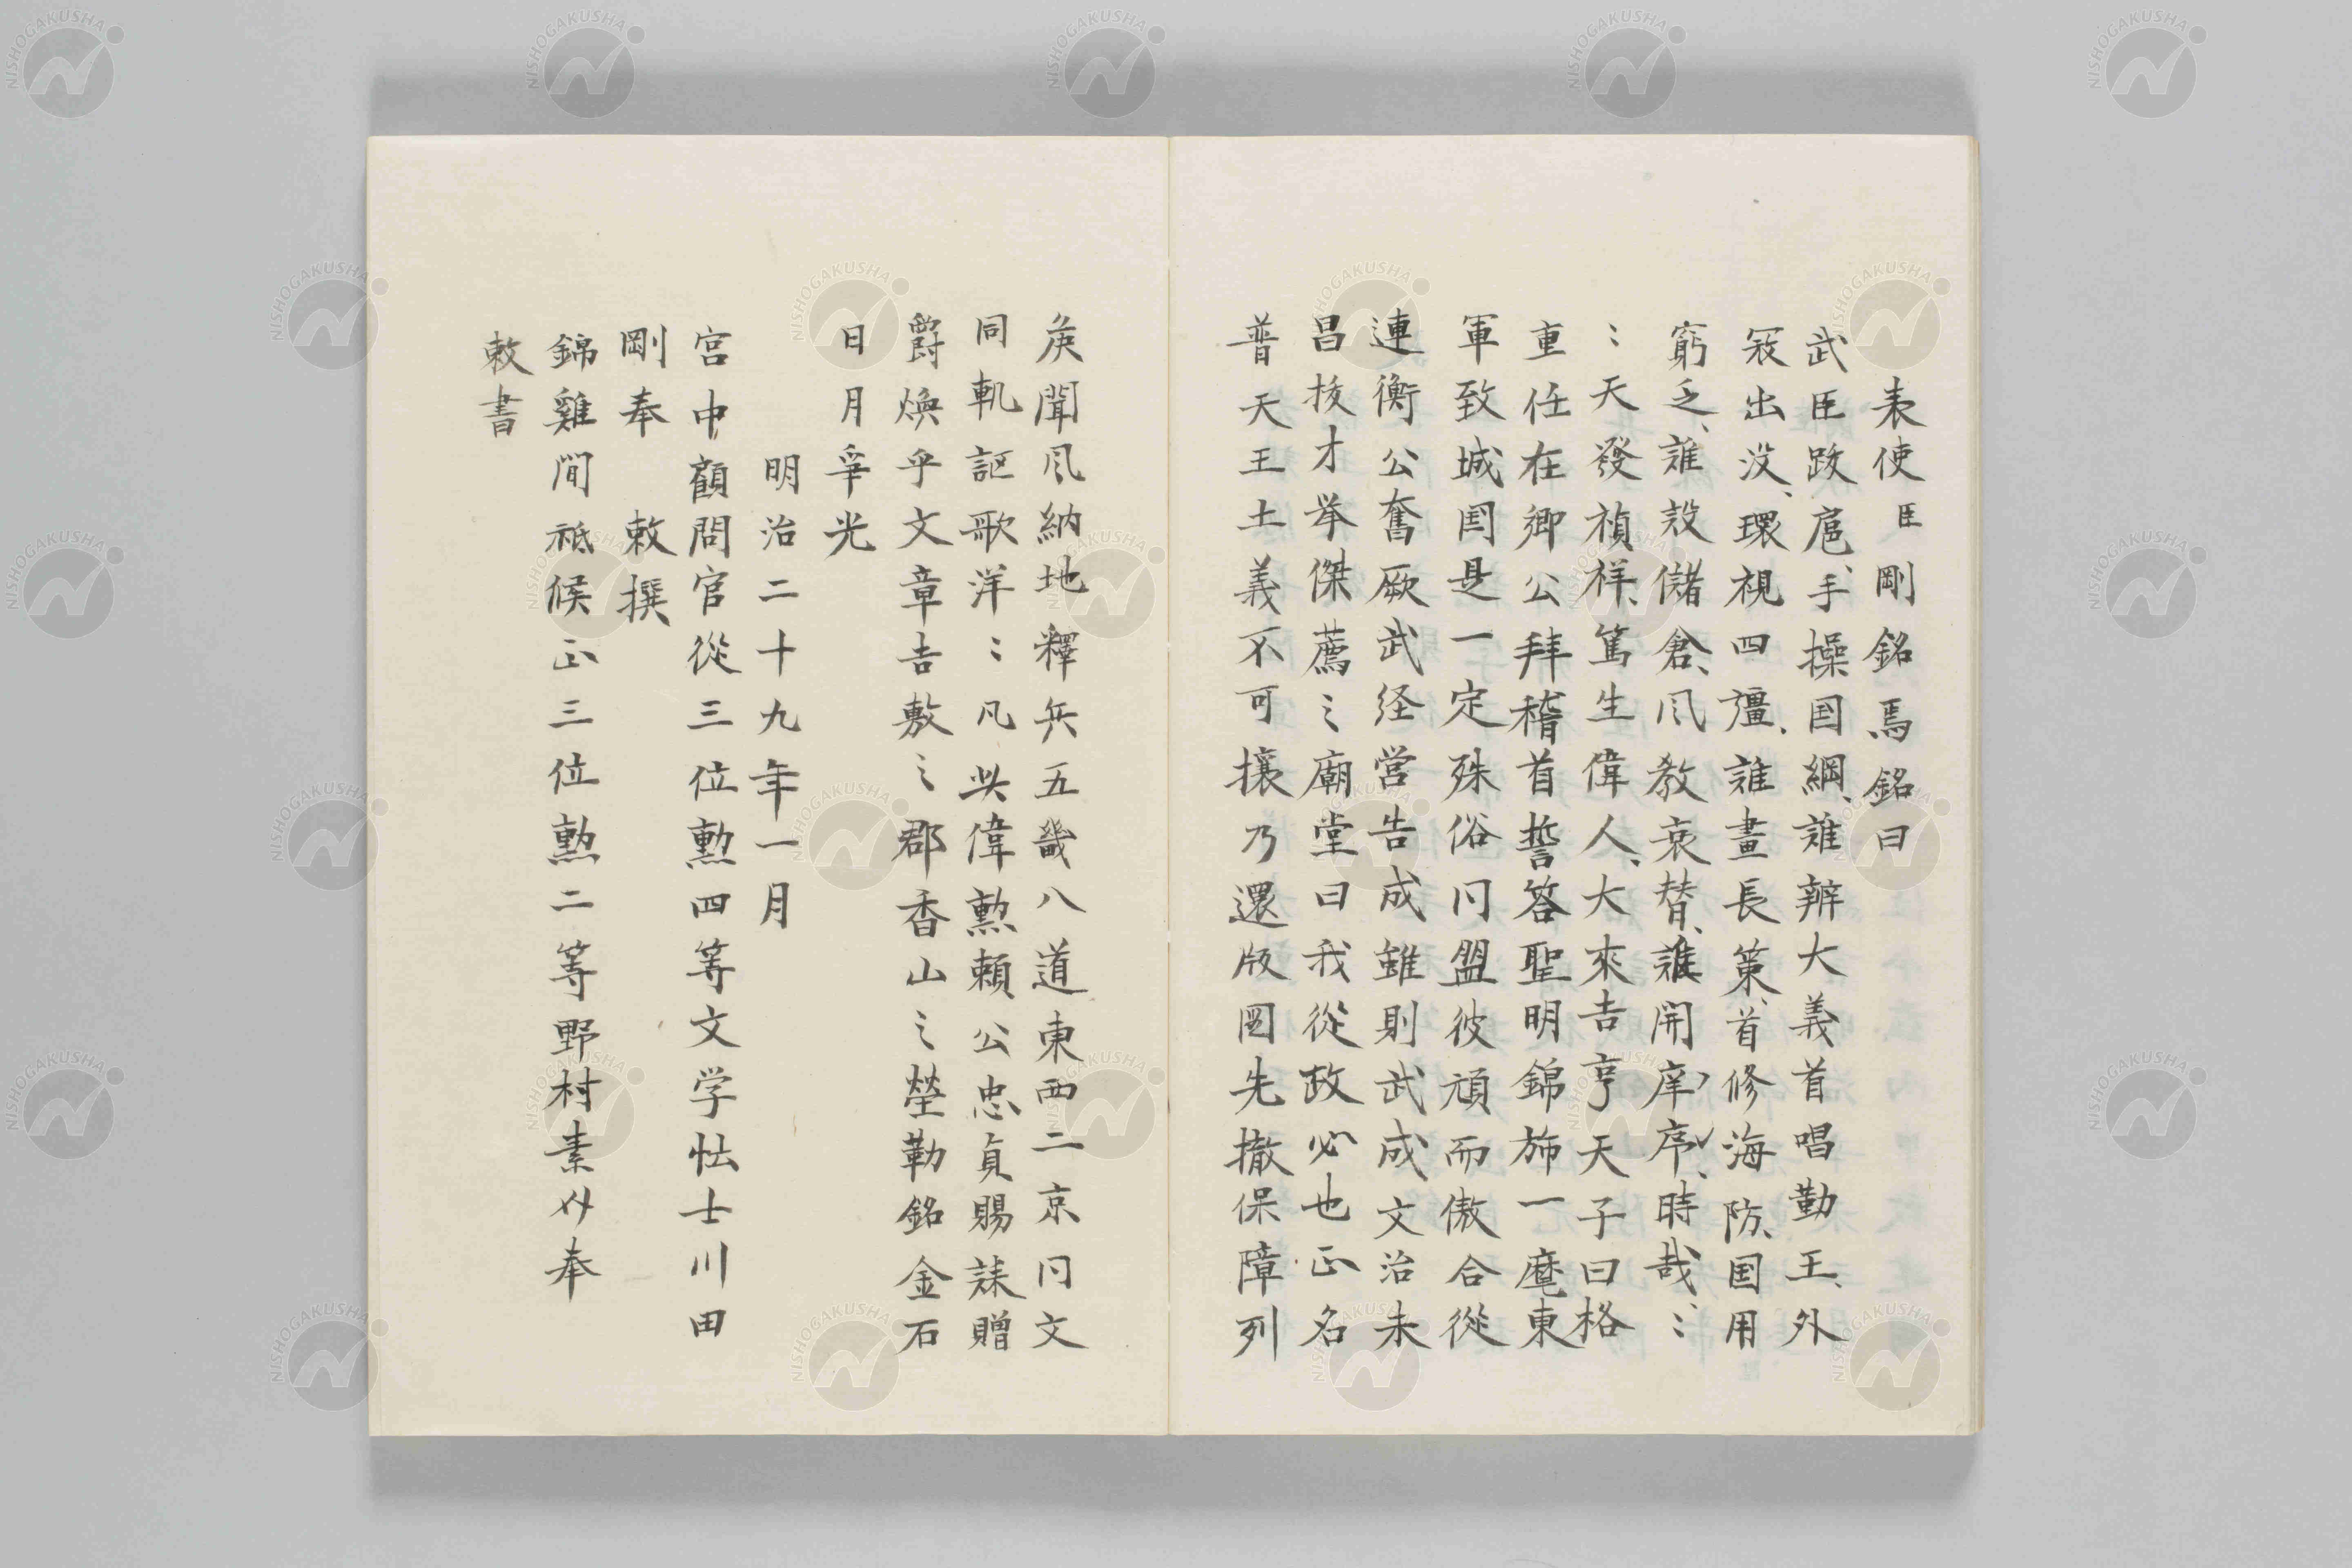 表使臣剛銘焉銘曰
武臣跋扈、手操国綱、誰辨大義首唱勤王、外
冦出没、環視四疆、誰畫長策、首修海防、国用
窮乏、誰殼儲倉、風教衰替、誰開庠序、時哉〻
〻天發禎祥、篤生偉人、大來吉亨天子曰格
重任在卿公拜稽首誓答聖明錦斾一麾東
軍致城国是一定殊俗问盟彼頑而傲合從
連衡公奮厥武経営告成雖則武成文治未
昌抜才举傑薦之廟堂曰我從政必也正名
普天王土義不可攘乃還版圖先撤保障列
矦聞風納地釋兵五畿八道東西二京同文
同軌謳歌洋〻凡此偉勲頼公忠貞賜誄贈
爵煥乎文章吉敷之郡香山之塋勒銘金石
日月爭光
明治二十九年一月
宮中顧問官從三位勲四等文学博士川田
剛奉　敕撰
錦雞間祗候正三位勲二等野村素介奉
敕書
NISHOGAKUSHA